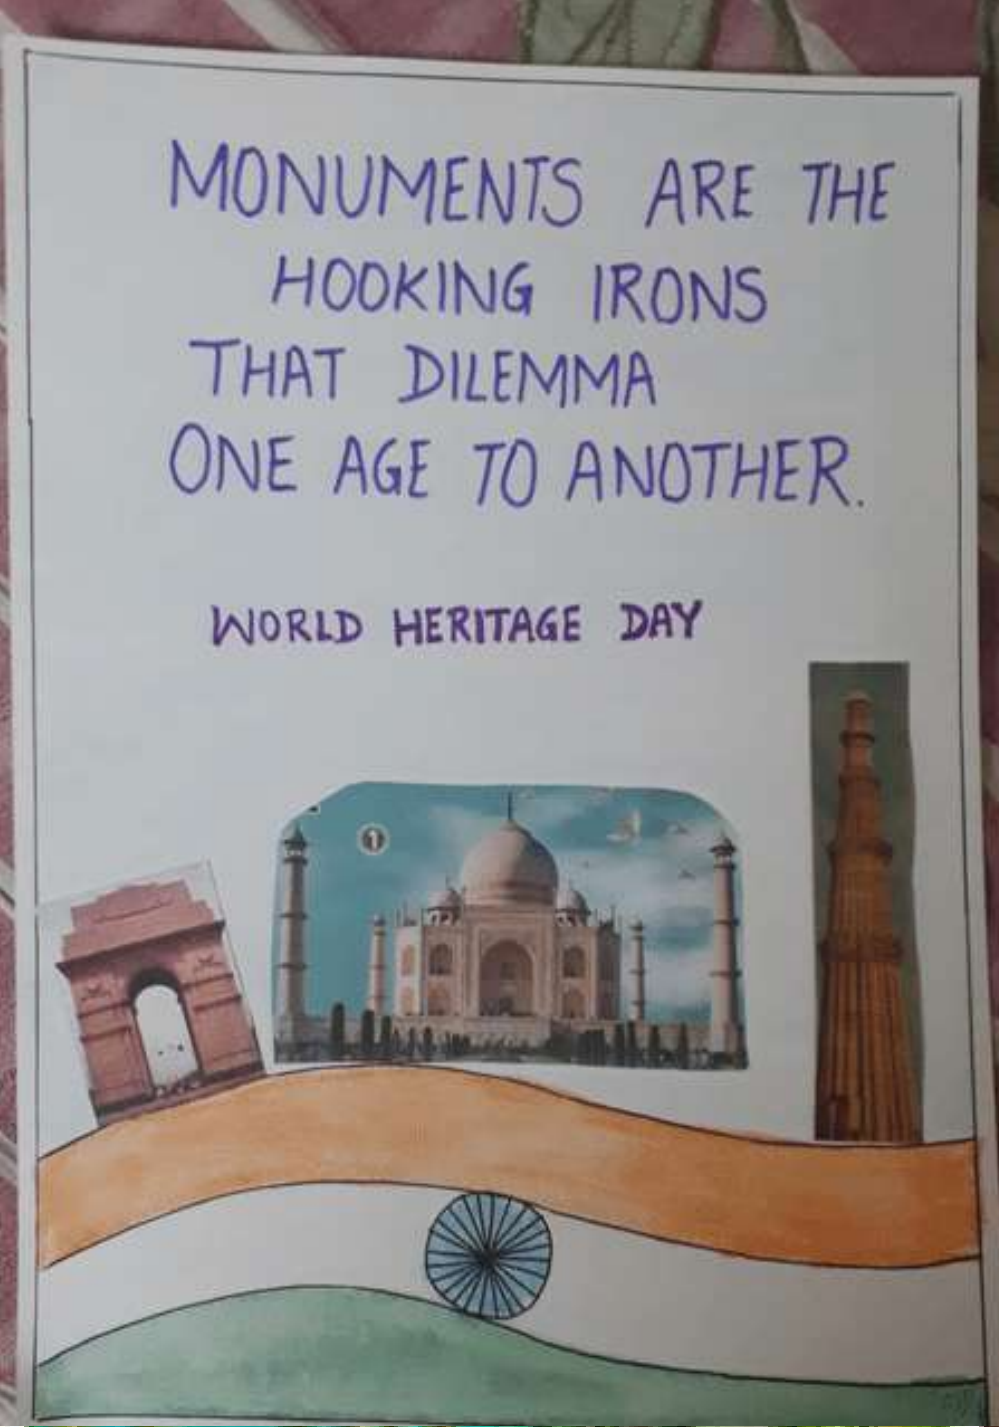 MONUMENTS ARE THE
HOOKING IRONS
THAT DILEMMA
ONE AGE TO ANOTHER.
WORLD HERITAGE DAY
1